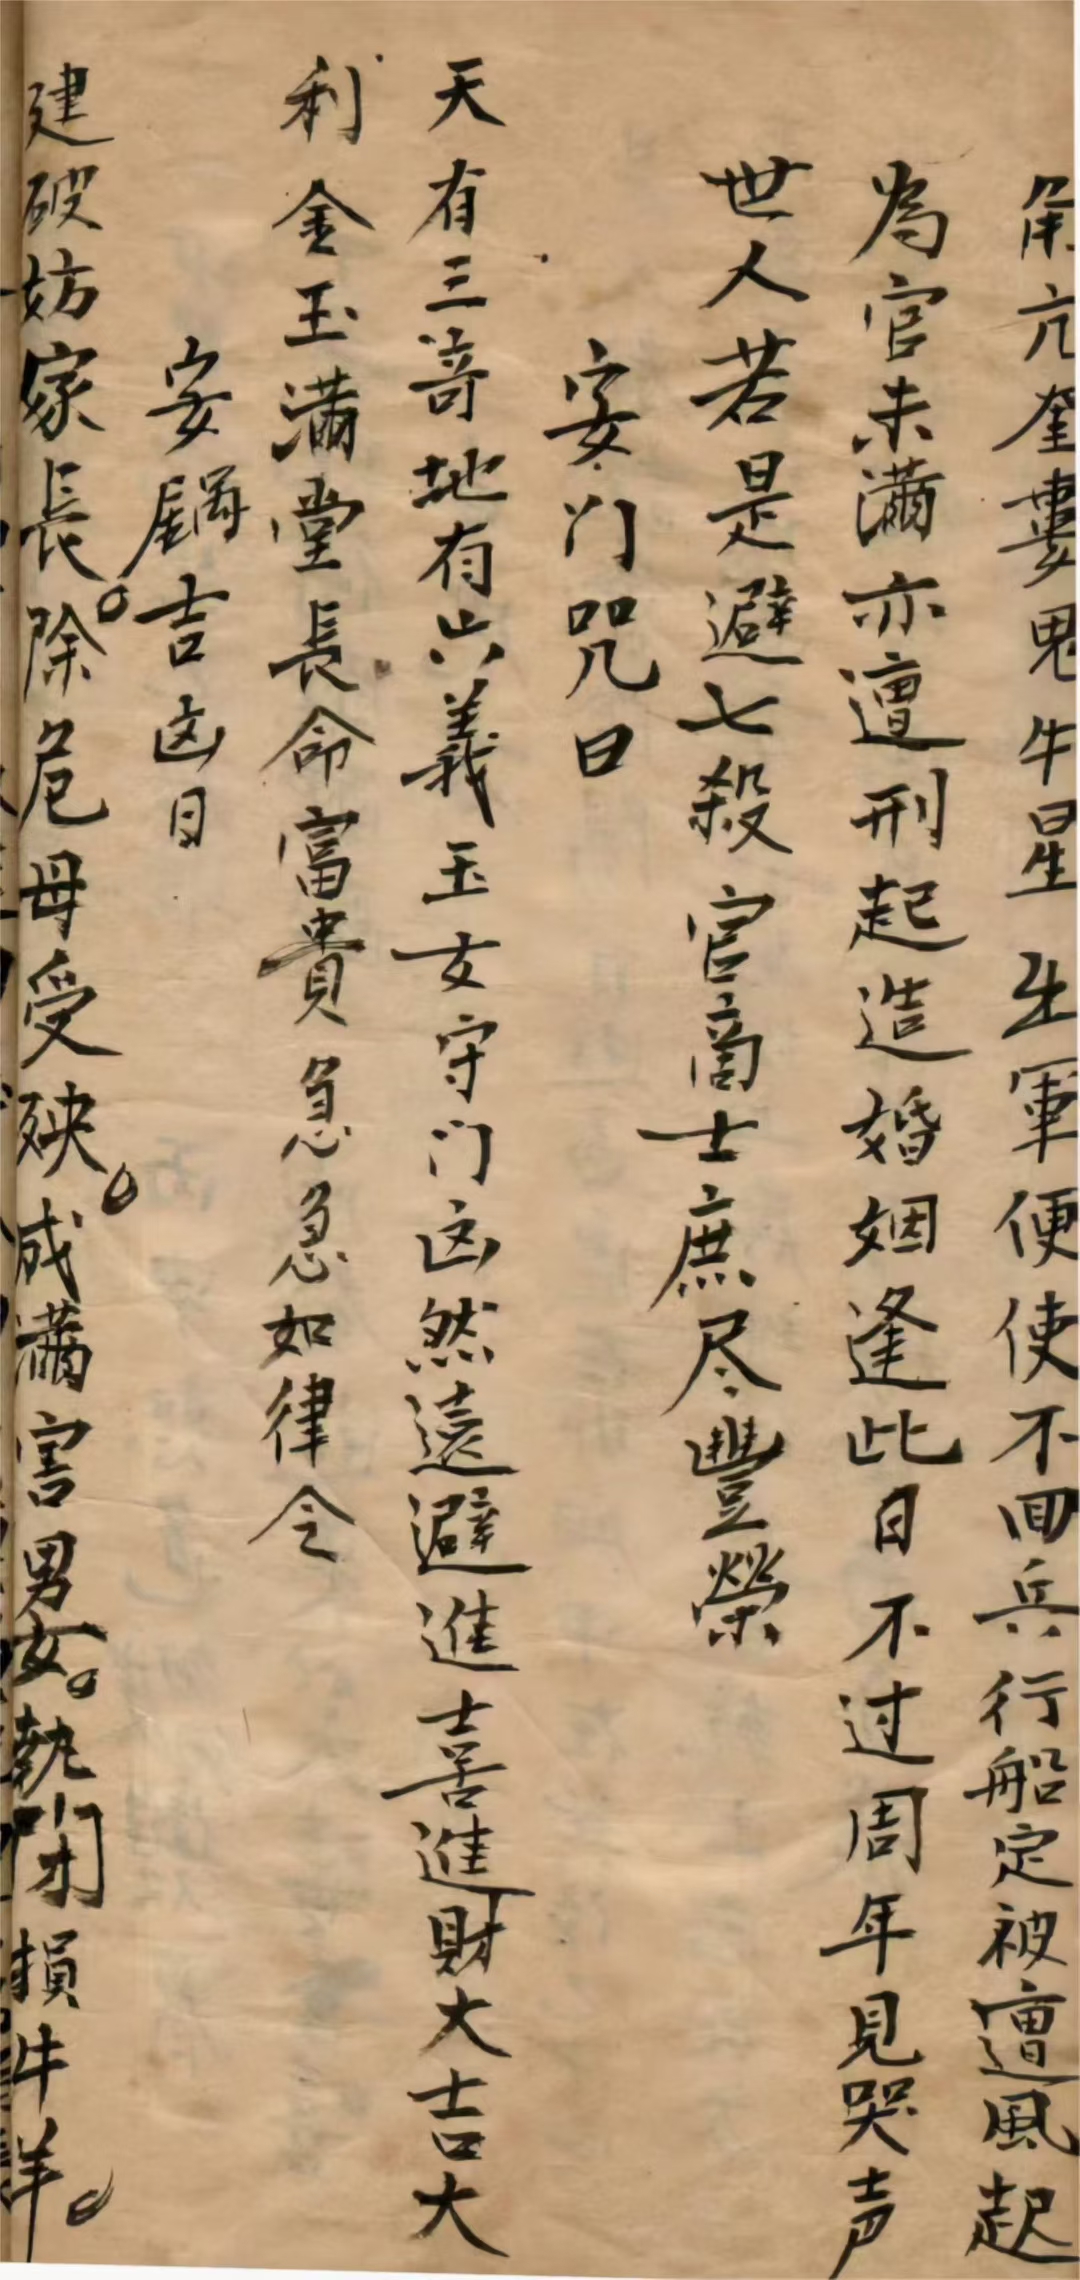 角亢奎婁鬼牛星出軍便使不回兵行船定被遭風起
為官未滿亦遭刑起造婚姻逢此日不过周年見哭声
世人若是避七殺官商士庶尽豐榮
安门咒曰
天有三竒地有六義玉女守门凶然遠避進喜進財大吉大
利金玉滿堂長命富貴急急如律令
安吉凶日
建破妨家長。除危母受殃。成滿害男女。執閉損牛羊。